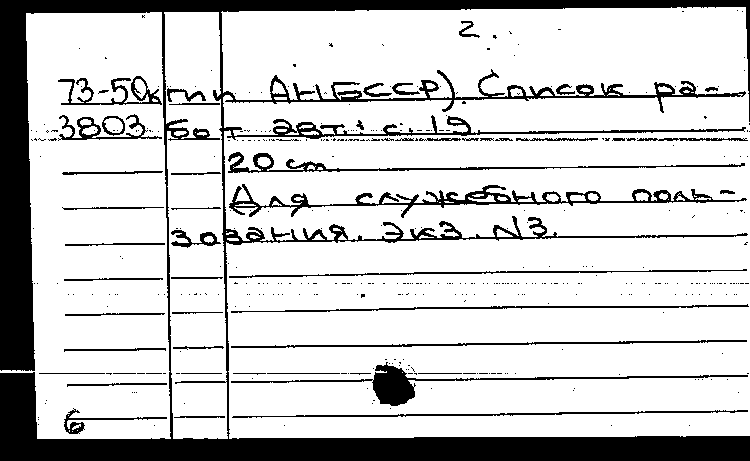 2.
73-50к гии АНБССР). Список ра-
3803 бот авт.: с. 19.
20 cm.
Для служебного поль-
зования. Экз. N3.
6